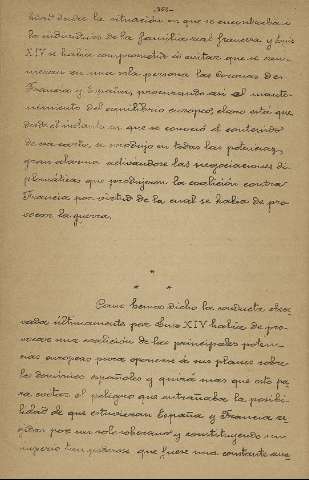 bird desde la situación en que se encontraban
los individuos de la familia real francesa y Luis
XIV se había comprometido á evitar que se reu-
nieran en una sola persona las coronas de
Francia y España, procurando asi el mante-
nimiento del equilibrio europeo, claro está que
desde el instante en que se conoció el contenido
de esa carta, se produjo en todas las potencias
gran alarma activandose las negociaciones di-
plomáticas que produjeron la coalición contra
Francia por virtud de la cual se había de pro-
vocar la guerra.
*
* *
Como hemos dicho la conducta obser-
vada últimamente por Luis XIV había de pro-
vocar una coalición de las principales poten-
cias europeas para oponerse á sus planes sobre
los dominios españoles y quizá mas que esto pa-
ra evitar el peligro que entrañaba la posibi-
lidad de que estuvieran España y Francia re-
gidas por un solo soberano y constituyendo un
imperio tan poderoso que fuese una constante ame